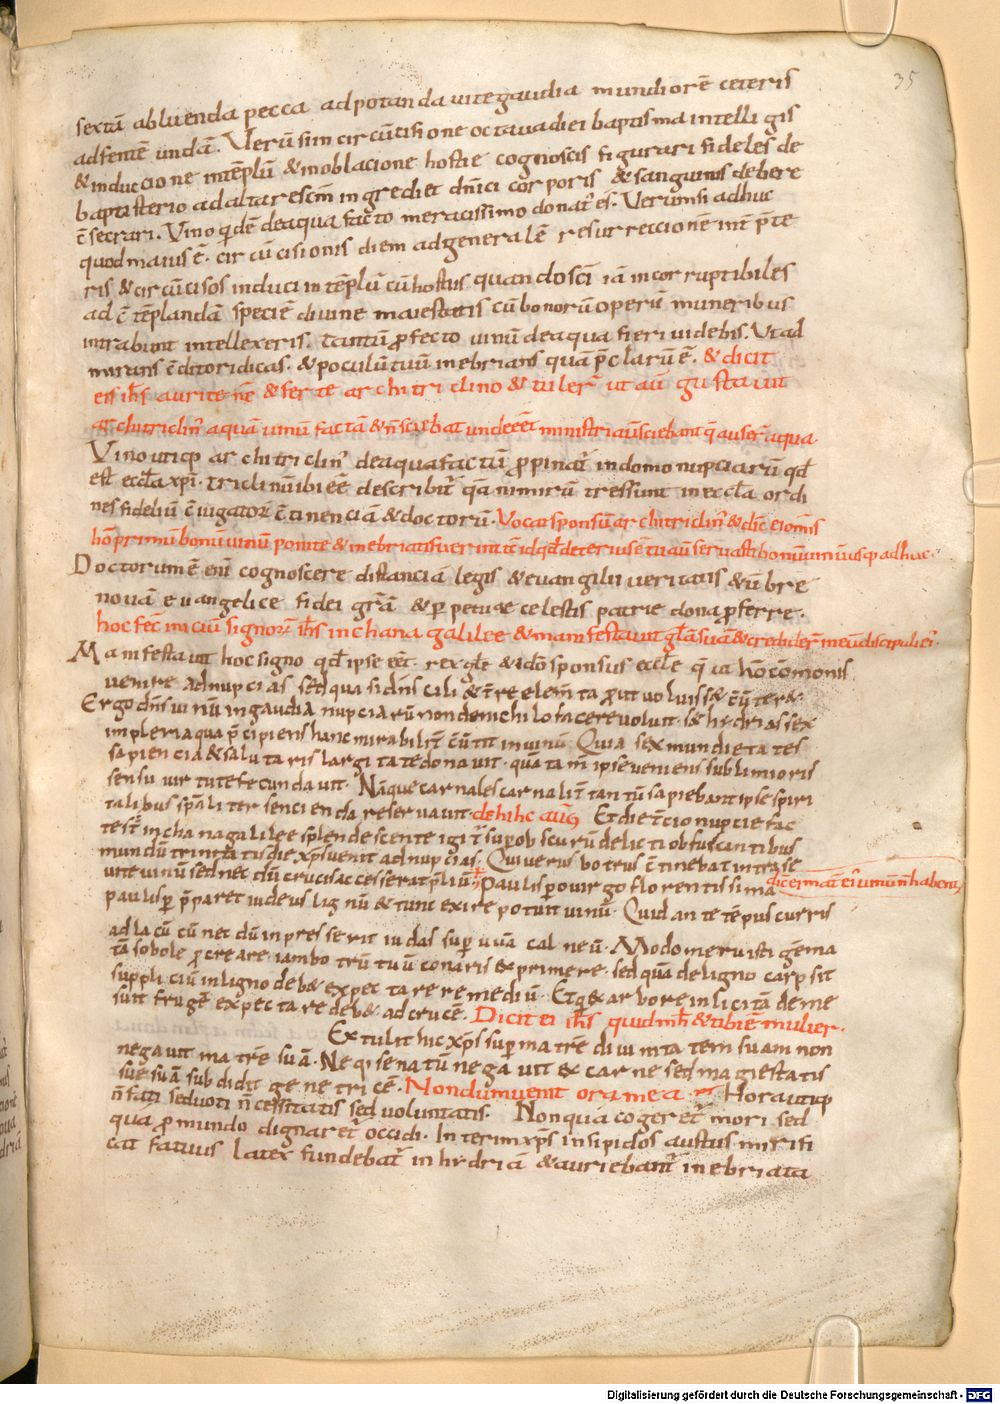 35
sextā abluenda pecca ad potanda vite gaudia mundiorē ceteris
adferre undā. Verū si in circūcisione octava diei baptisma intelligis
& in duccione in tēplū & in oblacione hostie cognoscis figurari fideles de
baptisterio ad altare sc̄m ingredi et dn̄ici corporis & sanguinis debere
c̄secrari. Vino qidē de aqua facto meracissimo donat' es. Verum si adhuc
quod maius ē. circūcisionis diem ad generalē resurreccionē
ris & circūcisos induci in tēplū cū hostiis quando sc̄i iā incorruptibiles
ad c̄tēplandā speciē divine maiestatis cū bonorū operū muneribus
intrabunt intellexeris. tantū pfecto vinū de aqua fieri videbis. Ut ad
mirans c̄ditori dicas. & poculū tuū inebrians quā p̄clarū ē. & dicit
eis ih̄s aurite nc̄ & ferte architriclino & tuler̄ ut aū gustavit
architriclin' aquā vinū factā & n̄ sciebat unde eēt ministri aū sciebant q̄ auser̄ aqua
Vino utiq; architriclin' de aqua factū ppinat' in domo nupciarū qd̄
est eccl̄a xp̄i. Triclinū ibi eē describit' qa nimirū tres sunt in eccl̄a ordi
nes fideliū c̄iugatorꝝ c̄tinenciā & doctorū. Vocat sponsū architriclin' & dic̄ ei om̄is
hō primū bonū vinū ponit & cū inebriati fuerint tc̄ id qd̄ deterius ē tu aū servasti bonū vinū usq; adhuc.
Doctorum ē eni cognoscere distanciā legis & evangilii veritatis & ūbre
novā evangelice fidei gr̄am & ppetuae celestis patrie dona pferre.
hoc fec̄ iniciū signorꝝ ih̄s in chana galilee & manifestavit gl̄a suā & credider̄ in eū discipuli ei'.
Manifestavit hoc signo qd̄ ipse eēt rex gl̄e & ido sponsus eccl̄e q̄
venire ad nupcias sed quasi dn̄s celi & t̄re elem̄ta put voluisset c̄vertere.
Ergo dn̄s vinū in gaudia nupciarū non de nichilo facere voluit. s& hydrias sex
impleri aqua p̄cipiens hanc mirabilit' c̄v̄tit in vinū. Quia sex mundi etates
sapiencia & salutaris largitate donavit. quā tam ipse veniens sublimioris
sensu virtute fecundavit. Nāque carnales carnalit' tantū sapiebant ipse spiri
talibus sp̄aliter sencienda reservavit. de hihc aug̅ Et die t̄cio nupcie fac
test' in chana galilee splendescente igit' sup obscurū delicti obfuscantibus
mundū trinitatis die xp̄s venit ad nupcias. Qui verus botrus c̄tinebat intra se
vite vinū sed nec dū crucis accesserat pliū. Paulisp o virgo florentissima dic̄ ei mat' ei' vinū n̄ habent
paulisp p̄paret iudeus lignū & tunc exire potuit vinū. Quid ante tēpus curris
ad lacū cū nec dū in presserit iudas sup uvā calneū. Modo meruisti gēma
tā sobole pcreare. iam botrū tuū conaris exprimere. sed quā de ligno carpsit
suppliciū in ligno deb& expectare remediū. Et q ex arbore inlicitā deme
suit frugē expectare deb& ad crucē. Dicit ei ih̄s quid mh̄i & tibi ē mulier.
Extulit hic xp̄s sup matrē divinitatem suam non
negavit matrē suā. Neq; se natū negavit ex carne sed magiestatis
sue suā subdidit genetricē. Nondum venit ora mea Hor utiq;
n̄ fati sed voti n̄cessitatis sed voluntatis. Non quā cogeret' mori sed
quā p mundo dignaret' occidi. Interim xp̄s insipidos austus mirifi
cat fatuus latex fundebat' in hydriā & auriebant' inebriata
Digitalisierung gefördert durch die Deutsche Forschungsgemeinschaft - DFG